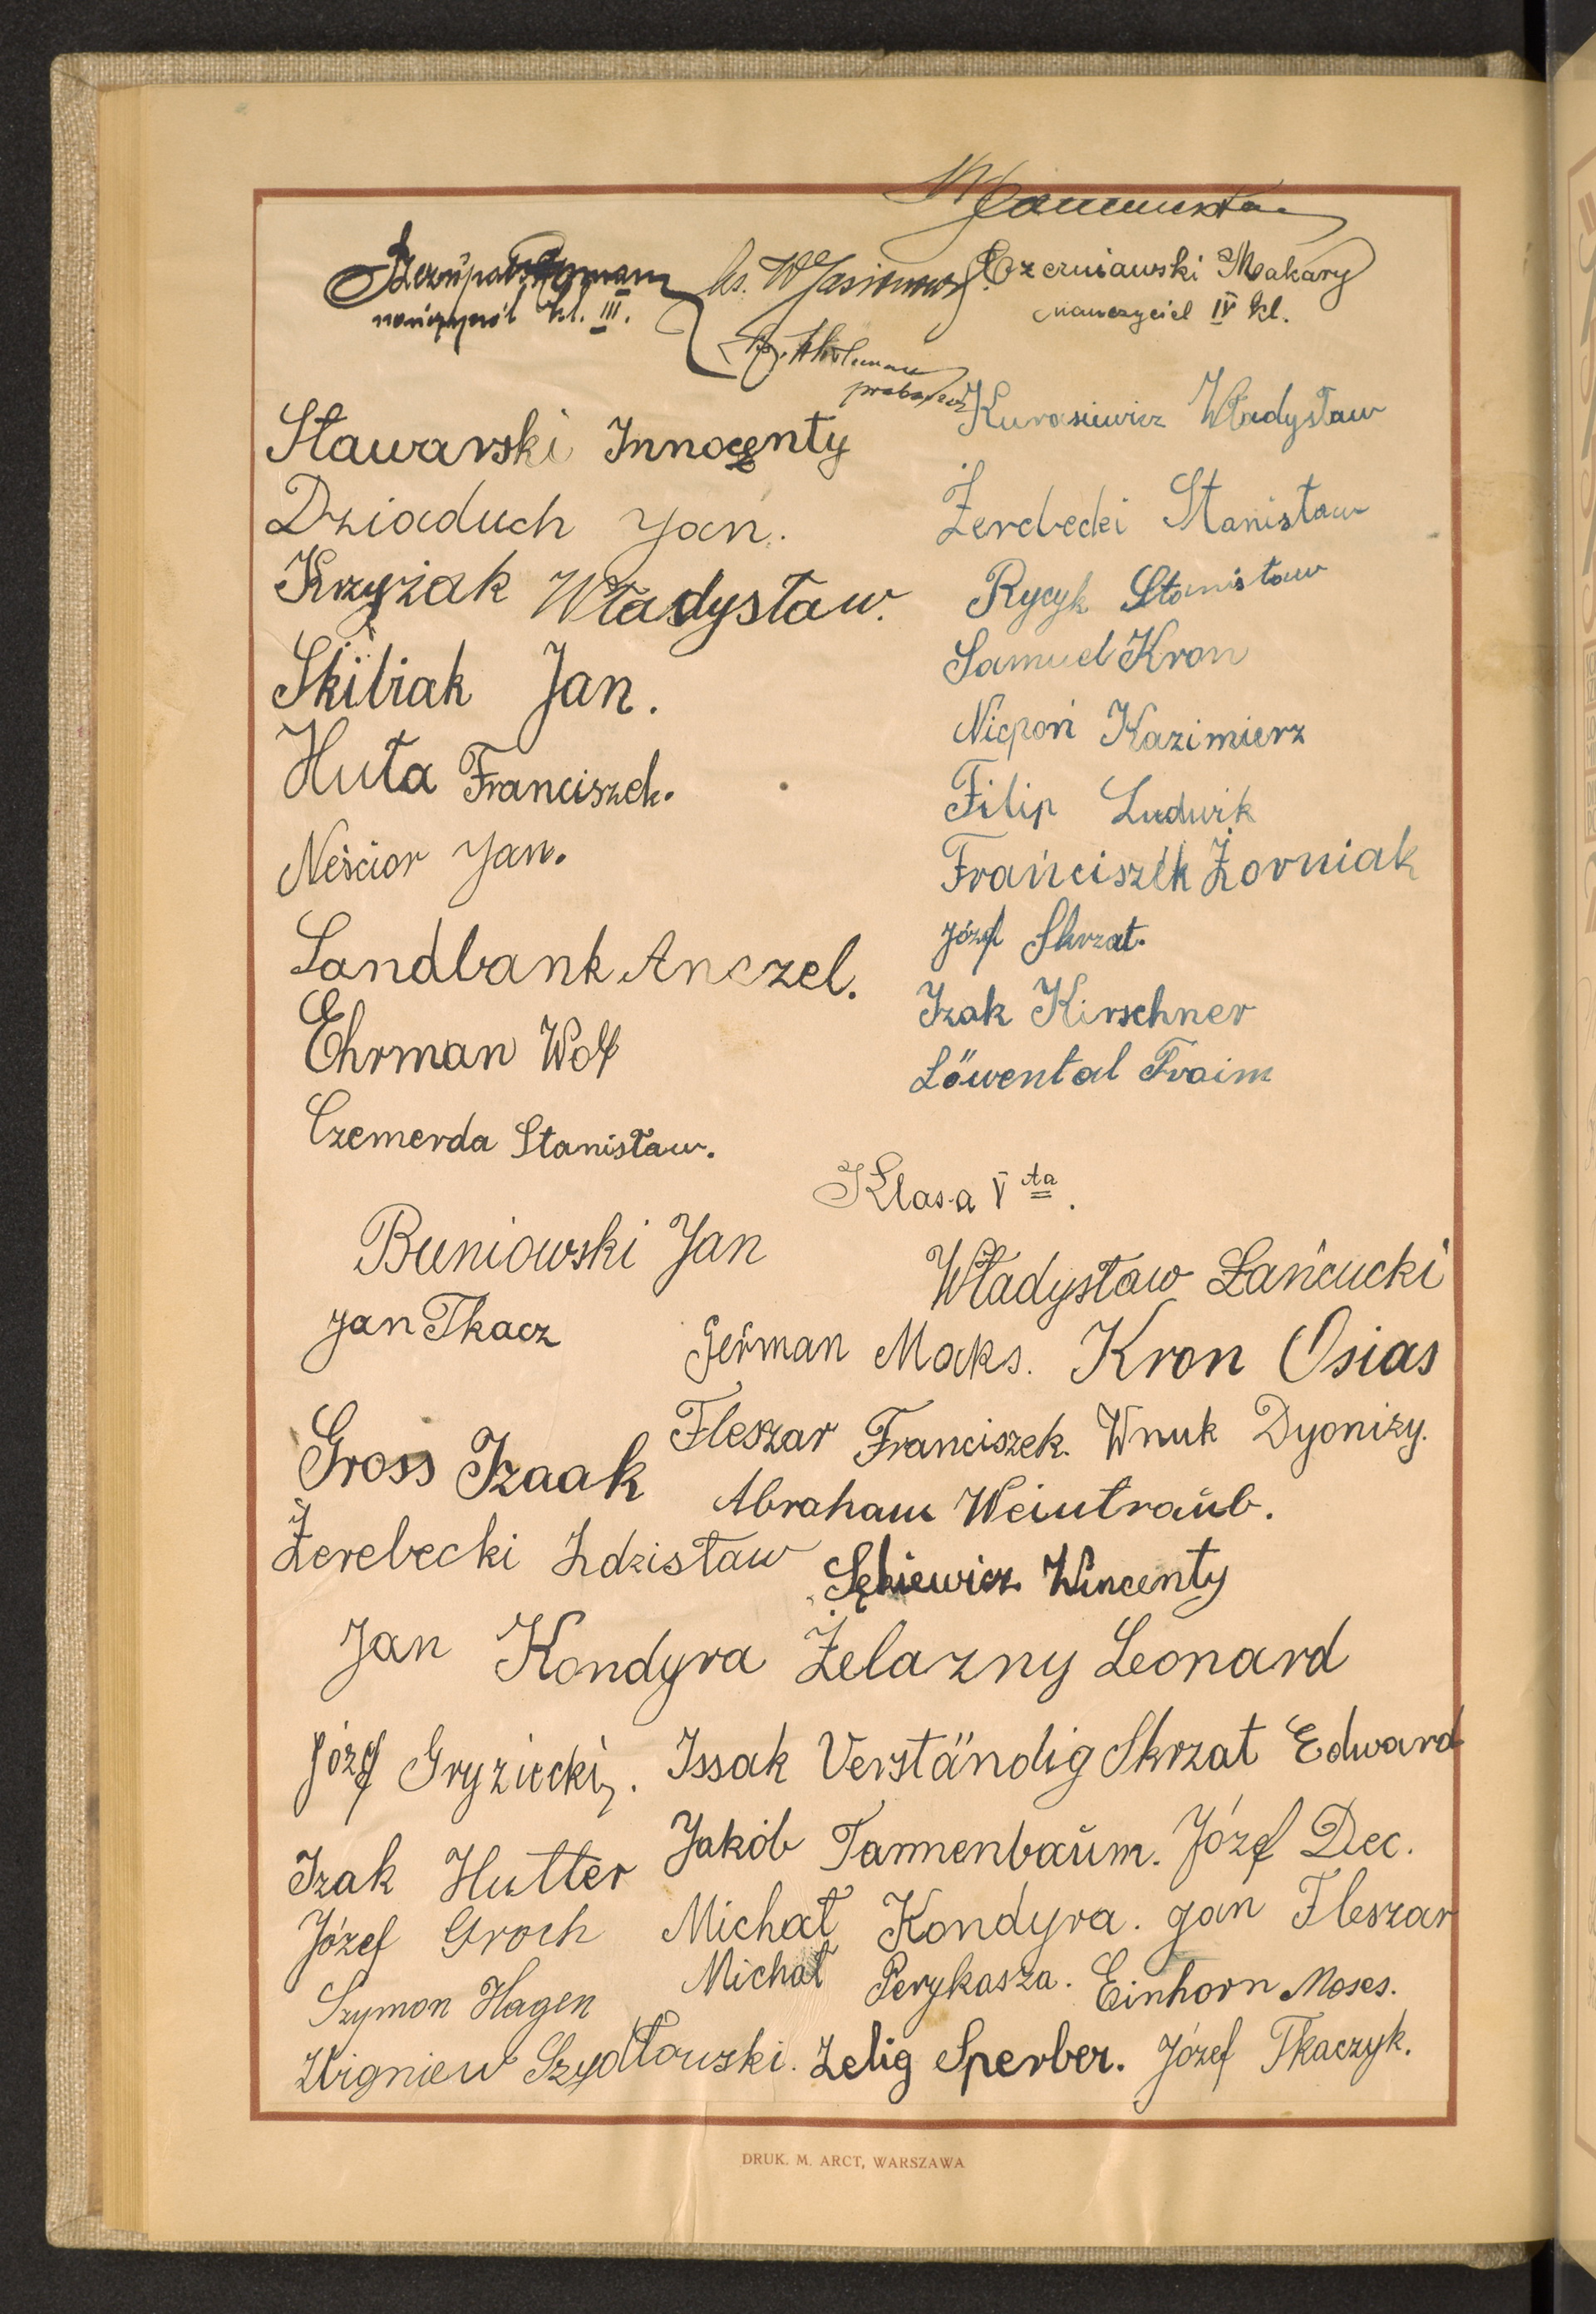 Czerniawski Makary
nauczyciel kl. III.
nauczyciel IV kl.
proboszcz
Kurasiewicz Władysław
Sławarski Innocenty
Żerebecki Stanisław
Dziaduch Jan.
Rycyk Stanisław
Krzyżak Władysław.
Samuel Kron
Skibiak Jan.
Nicpoń Kazimierz
Huta Franciszek.
Filip Ludwik
Neścior Jan.
Franciszek Żorniak
Józef Skrzat.
Landbank Anczel.
Izak Kirschner
Ehrman Wolf
Löwental Froim
Czemerda Stanisław.
Klasa V ta.
Buniowski Jan
Władysław Łańcucki
Jan Tkacz
German Maks. Kron Osias
Fleszar Franciszek. Wnuk Dyonizy.
Gross Izaak
Abraham Weintraub.
Żerebecki Zdzisław
Sękiewicz Wincenty
Jan Kondyra Żelazny Leonard
Józef Gryziecki. Issak Verständig Skrzat Edward
Jakób Tannenbaŭm. Józef Dec.
Izak Hutter
Michał Kondyra. Jan Fleszar
Józef Groch
Michał Perykasza. Einhorn Moses.
Szymon Hagen
Zbigniew Szydłowski. Zelig Sperber. Józef Tkaczyk.
DRUK. M. ARCT, WARSZAWA